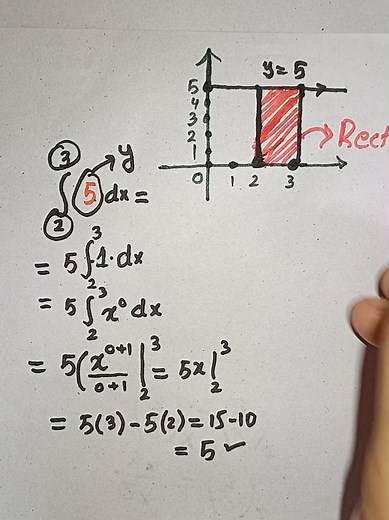 y=5
5
4
3
2
1
0 1 2 3
Rect
y
∫₂³ 5 dx =
= 5 ∫₂³ 1·dx
= 5 ∫₂³ x⁰ dx
= 5( x⁰⁺¹/0+1 |₂³ = 5x |₂³
= 5(3) - 5(2) = 15-10
= 5 ✓